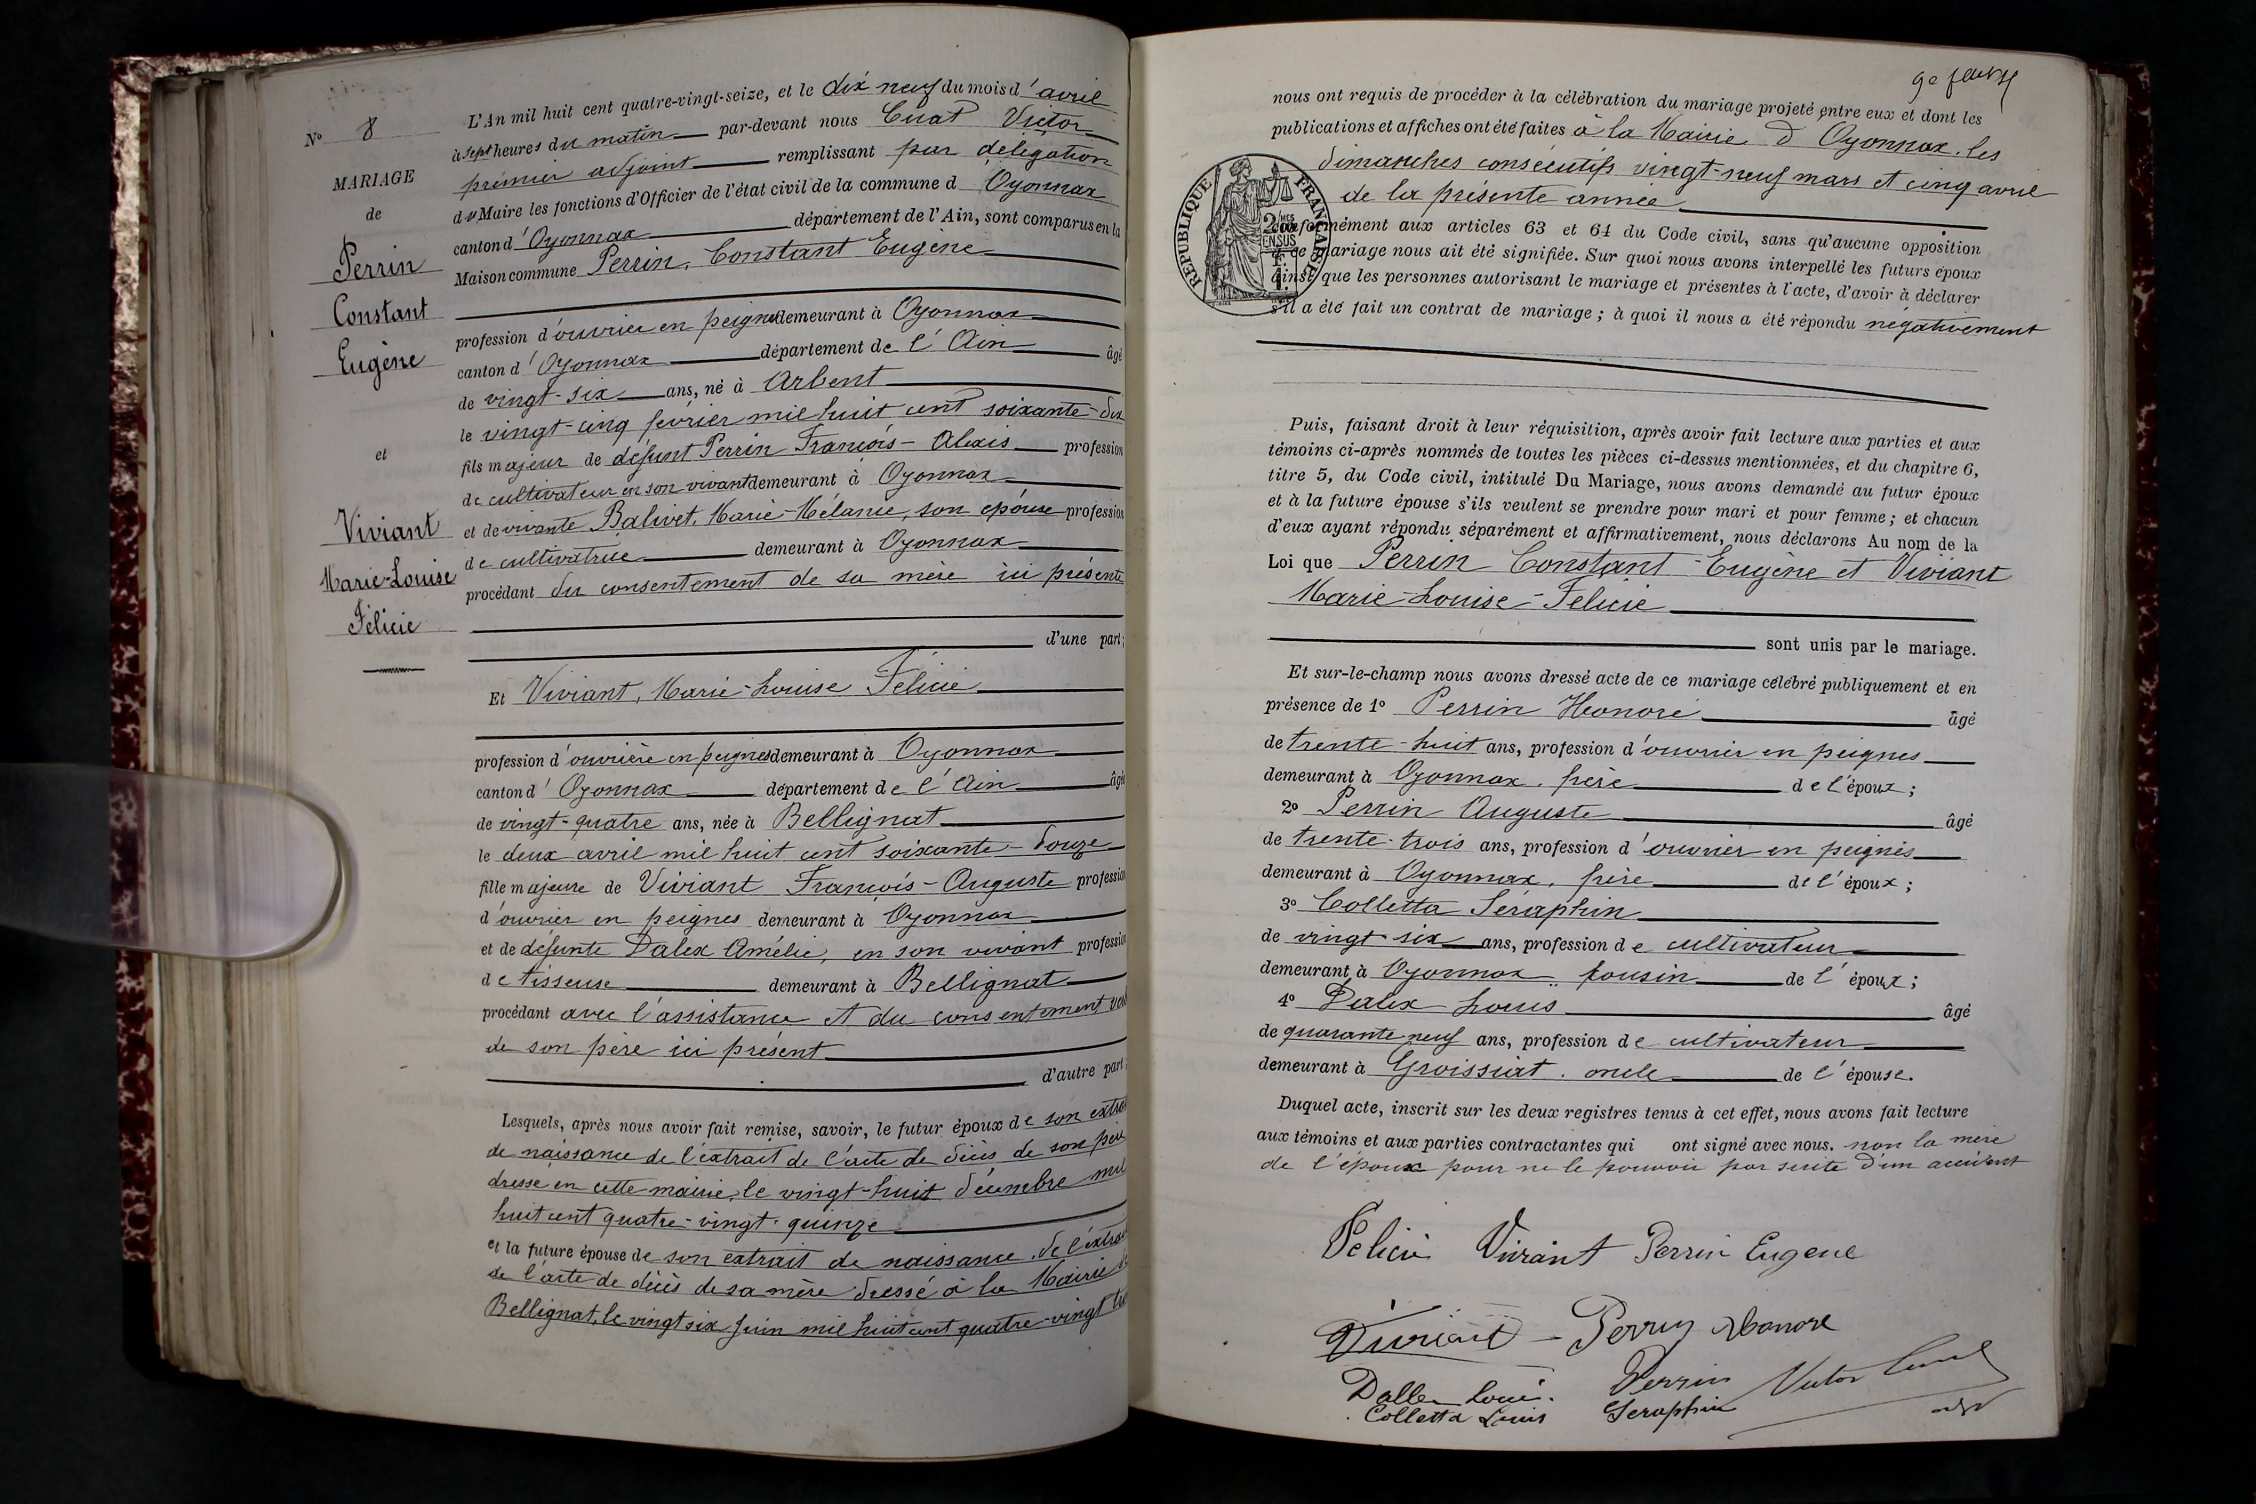 N° 8
MARIAGE
de
Perrin
Constant
Eugène
et
Viviant
Marie-Louise
Félicie
L'An mil huit cent quatre-vingt-seize, et le dix neuf du mois d'avril
à sept heures du matin par-devant nous Cuat Victor
premier adjoint remplissant par délégation
du Maire les fonctions d'Officier de l'état civil de la commune d Oyonnax
canton d'Oyonnax département de l'Ain, sont comparus en la
Maison commune Perrin, Constant Eugène
profession d'ouvrier en peignes demeurant à Oyonnax
canton d'Oyonnax département de l'Ain âgé
de vingt-six ans, né à Arbent
le vingt-cinq février mil huit cent soixante-dix
fils majeur de défunt Perrin François-Alexis profession
de cultivateur en son vivant demeurant à Oyonnax
et de vivante Balivet, Marie-Mélanie, son épouse profession
de cultivatrice demeurant à Oyonnax
procédant du consentement de sa mère ici présente
d'une part;
Et Viviant, Marie-Louise Félicie
profession d'ouvrière en peignes demeurant à Oyonnax
canton d'Oyonnax département de l'Ain âgé
de vingt-quatre ans, née à Bellignat
le deux avril mil huit cent soixante-douze
fille majeure de Viviant François-Auguste profession
d'ouvrier en peignes demeurant à Oyonnax
et de défunte Dalex Amélie, en son vivant profession
de tisseuse demeurant à Bellignat
procédant avec l'assistance et du consentement
de son père ici présent
d'autre part
Lesquels, après nous avoir fait remise, savoir, le futur époux de son extrait
de naissance de l'extrait de l'acte de décès de son père
dressé en cette mairie, le vingt-huit décembre mil
huit cent quatre-vingt-quinze
et la future épouse de son extrait de naissance, de l'extrait
de l'acte de décès de sa mère dressé à la Mairie de
Bellignat, le vingt six juin mil huit cent quatre-vingt
nous ont requis de procéder à la célébration du mariage projeté entre eux et dont les
publications et affiches ont été faites à la Mairie d'Oyonnax, les
dimanches consécutifs vingt-neuf mars et cinq avril
de la présente année
REPUBLIQUE FRANÇAISE
conformément aux articles 63 et 64 du Code civil, sans qu'aucune opposition
à ce mariage nous ait été signifiée. Sur quoi nous avons interpellé les futurs époux
ainsi que les personnes autorisant le mariage et présentes à l'acte, d'avoir à déclarer
s'il a été fait un contrat de mariage; à quoi il nous a été répondu négativement
Puis, faisant droit à leur réquisition, après avoir fait lecture aux parties et aux
témoins ci-après nommés de toutes les pièces ci-dessus mentionnées, et du chapitre 6,
titre 5, du Code civil, intitulé Du Mariage, nous avons demandé au futur époux
et à la future épouse s'ils veulent se prendre pour mari et pour femme; et chacun
d'eux ayant répondu séparément et affirmativement, nous déclarons Au nom de la
Loi que Perrin Constant-Eugène et Viviant
Marie-Louise-Félicie
sont unis par le mariage.
Et sur-le-champ nous avons dressé acte de ce mariage célébré publiquement et en
présence de 1° Perrin Honoré âgé
de trente-huit ans, profession d'ouvrier en peignes
demeurant à Oyonnax, frère de l'époux;
2° Perrin Auguste âgé
de trente-trois ans, profession d'ouvrier en peignes
demeurant à Oyonnax, frère de l'époux;
3° Colletta Séraphin
de vingt-six ans, profession de cultivateur
demeurant à Oyonnax cousin de l'époux;
4° Dalex Louis âgé
de quarante-neuf ans, profession de cultivateur
demeurant à Groissiat. oncle de l'épouse.
Duquel acte, inscrit sur les deux registres tenus à cet effet, nous avons fait lecture
aux témoins et aux parties contractantes qui ont signé avec nous. non la mère
de l'époux pour ne le pouvoir par suite d'un accident
Félicie Viviant Perrin Eugene
Viviant Perrin Honoré
Perrin Victor Cuat
Dallex Louis.
Colletta Louis Seraphin